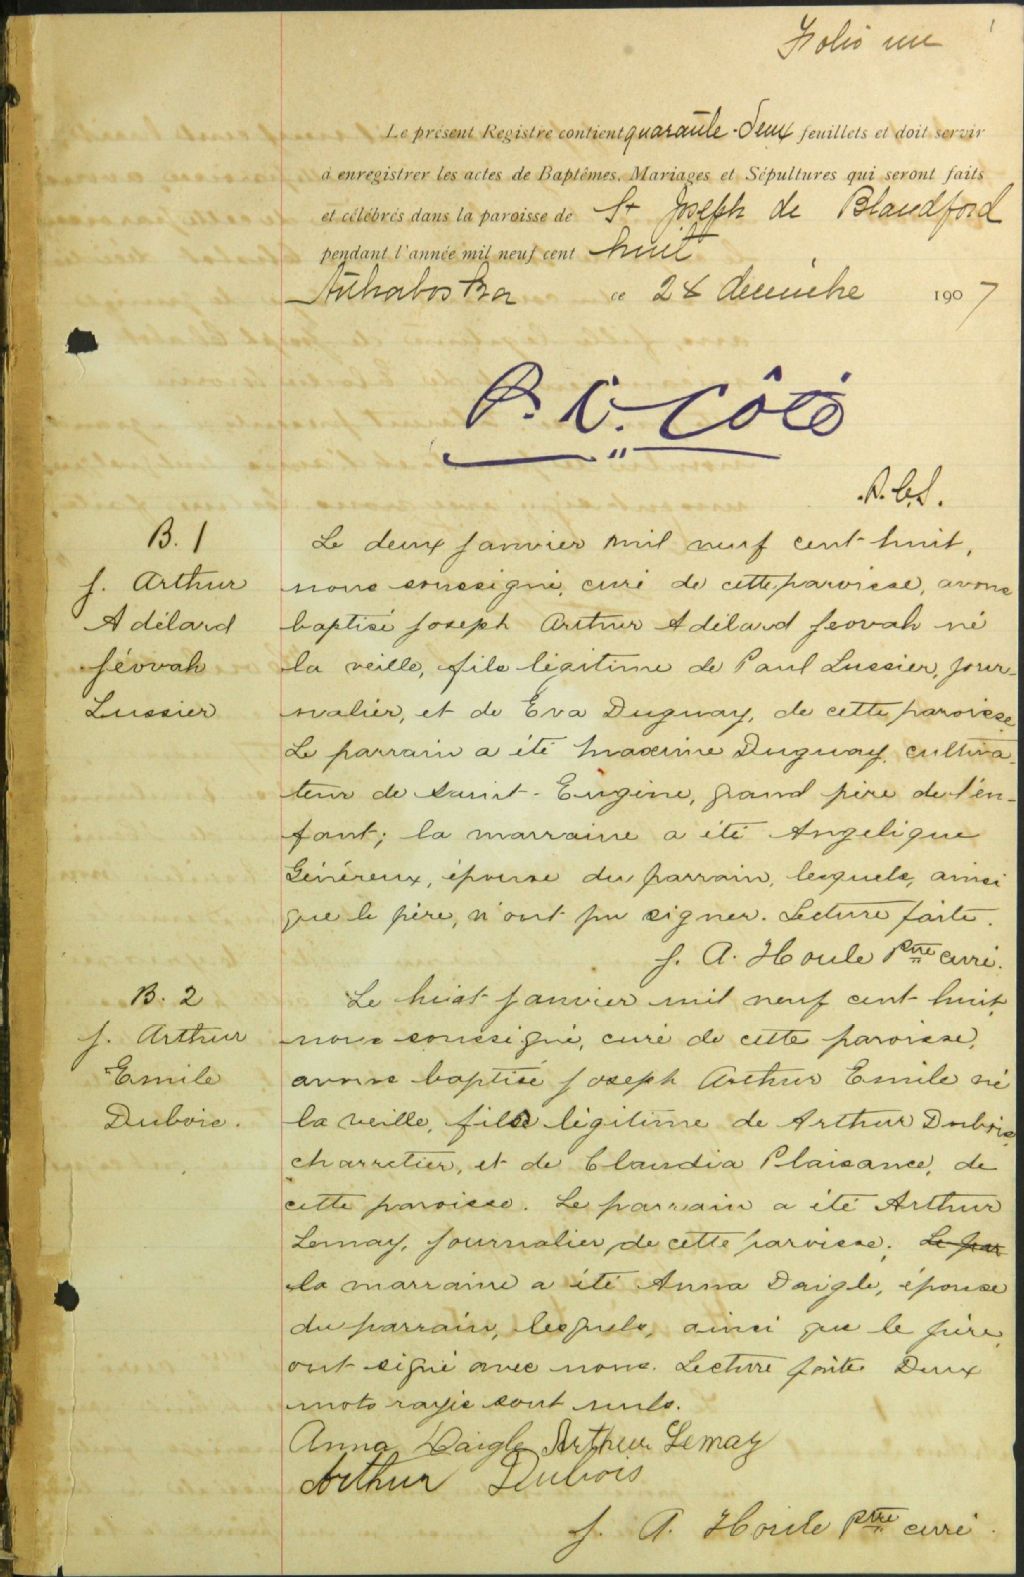 Folio un
1
Le présent Registre contient quarante-deux feuillets et doit servir
à enregistrer les actes de Baptêmes, Mariages et Sépultures qui seront faits
et célébrés dans la paroisse de St Joseph de Blandford
pendant l'année mil neuf cent huit
Arthabaska ce 28 décembre 1907
P. C. Côté
P.C.S.
B. 1
J. Arthur
Adélard
Féovah
Lussier
Le deux janvier mil neuf cent huit,
nous soussigné, curé de cette paroisse, avons
baptisé Joseph Arthur Adélard Feovah né
la veille, fils légitime de Paul Lussier, jour-
nalier, et de Eva Duguay, de cette paroisse
Le parrain a été Maxime Duguay, cultiva-
teur de Saint-Eugène, grand père de l'en-
fant; la marraine a été Angelique
Généreux, épouse du parrain, lesquels, ainsi
que le père, n'ont pu signer. Lecture faite.
J. A. Houle Ptre curé.
B. 2
J. Arthur
Emile
Dubois.
Le huit janvier mil neuf cent huit,
nous soussigné, curé de cette paroisse,
avons baptisé Joseph Arthur Emile né
la veille, fils légitime de Arthur Dubois,
charretier, et de Claudia Plaisance, de
cette paroisse. Le parrain a été Arthur
Lemay, journalier, de cette paroisse; Le par
la marraine a été Anna Daigle, épouse
du parrain, lesquels, ainsi que le père,
ont signé avec nous. Lecture faite. Deux
mots rayés sont nuls.
Anna Daigle Arthur Lemay
Arthur Dubois
J. A. Houle Ptre curé.